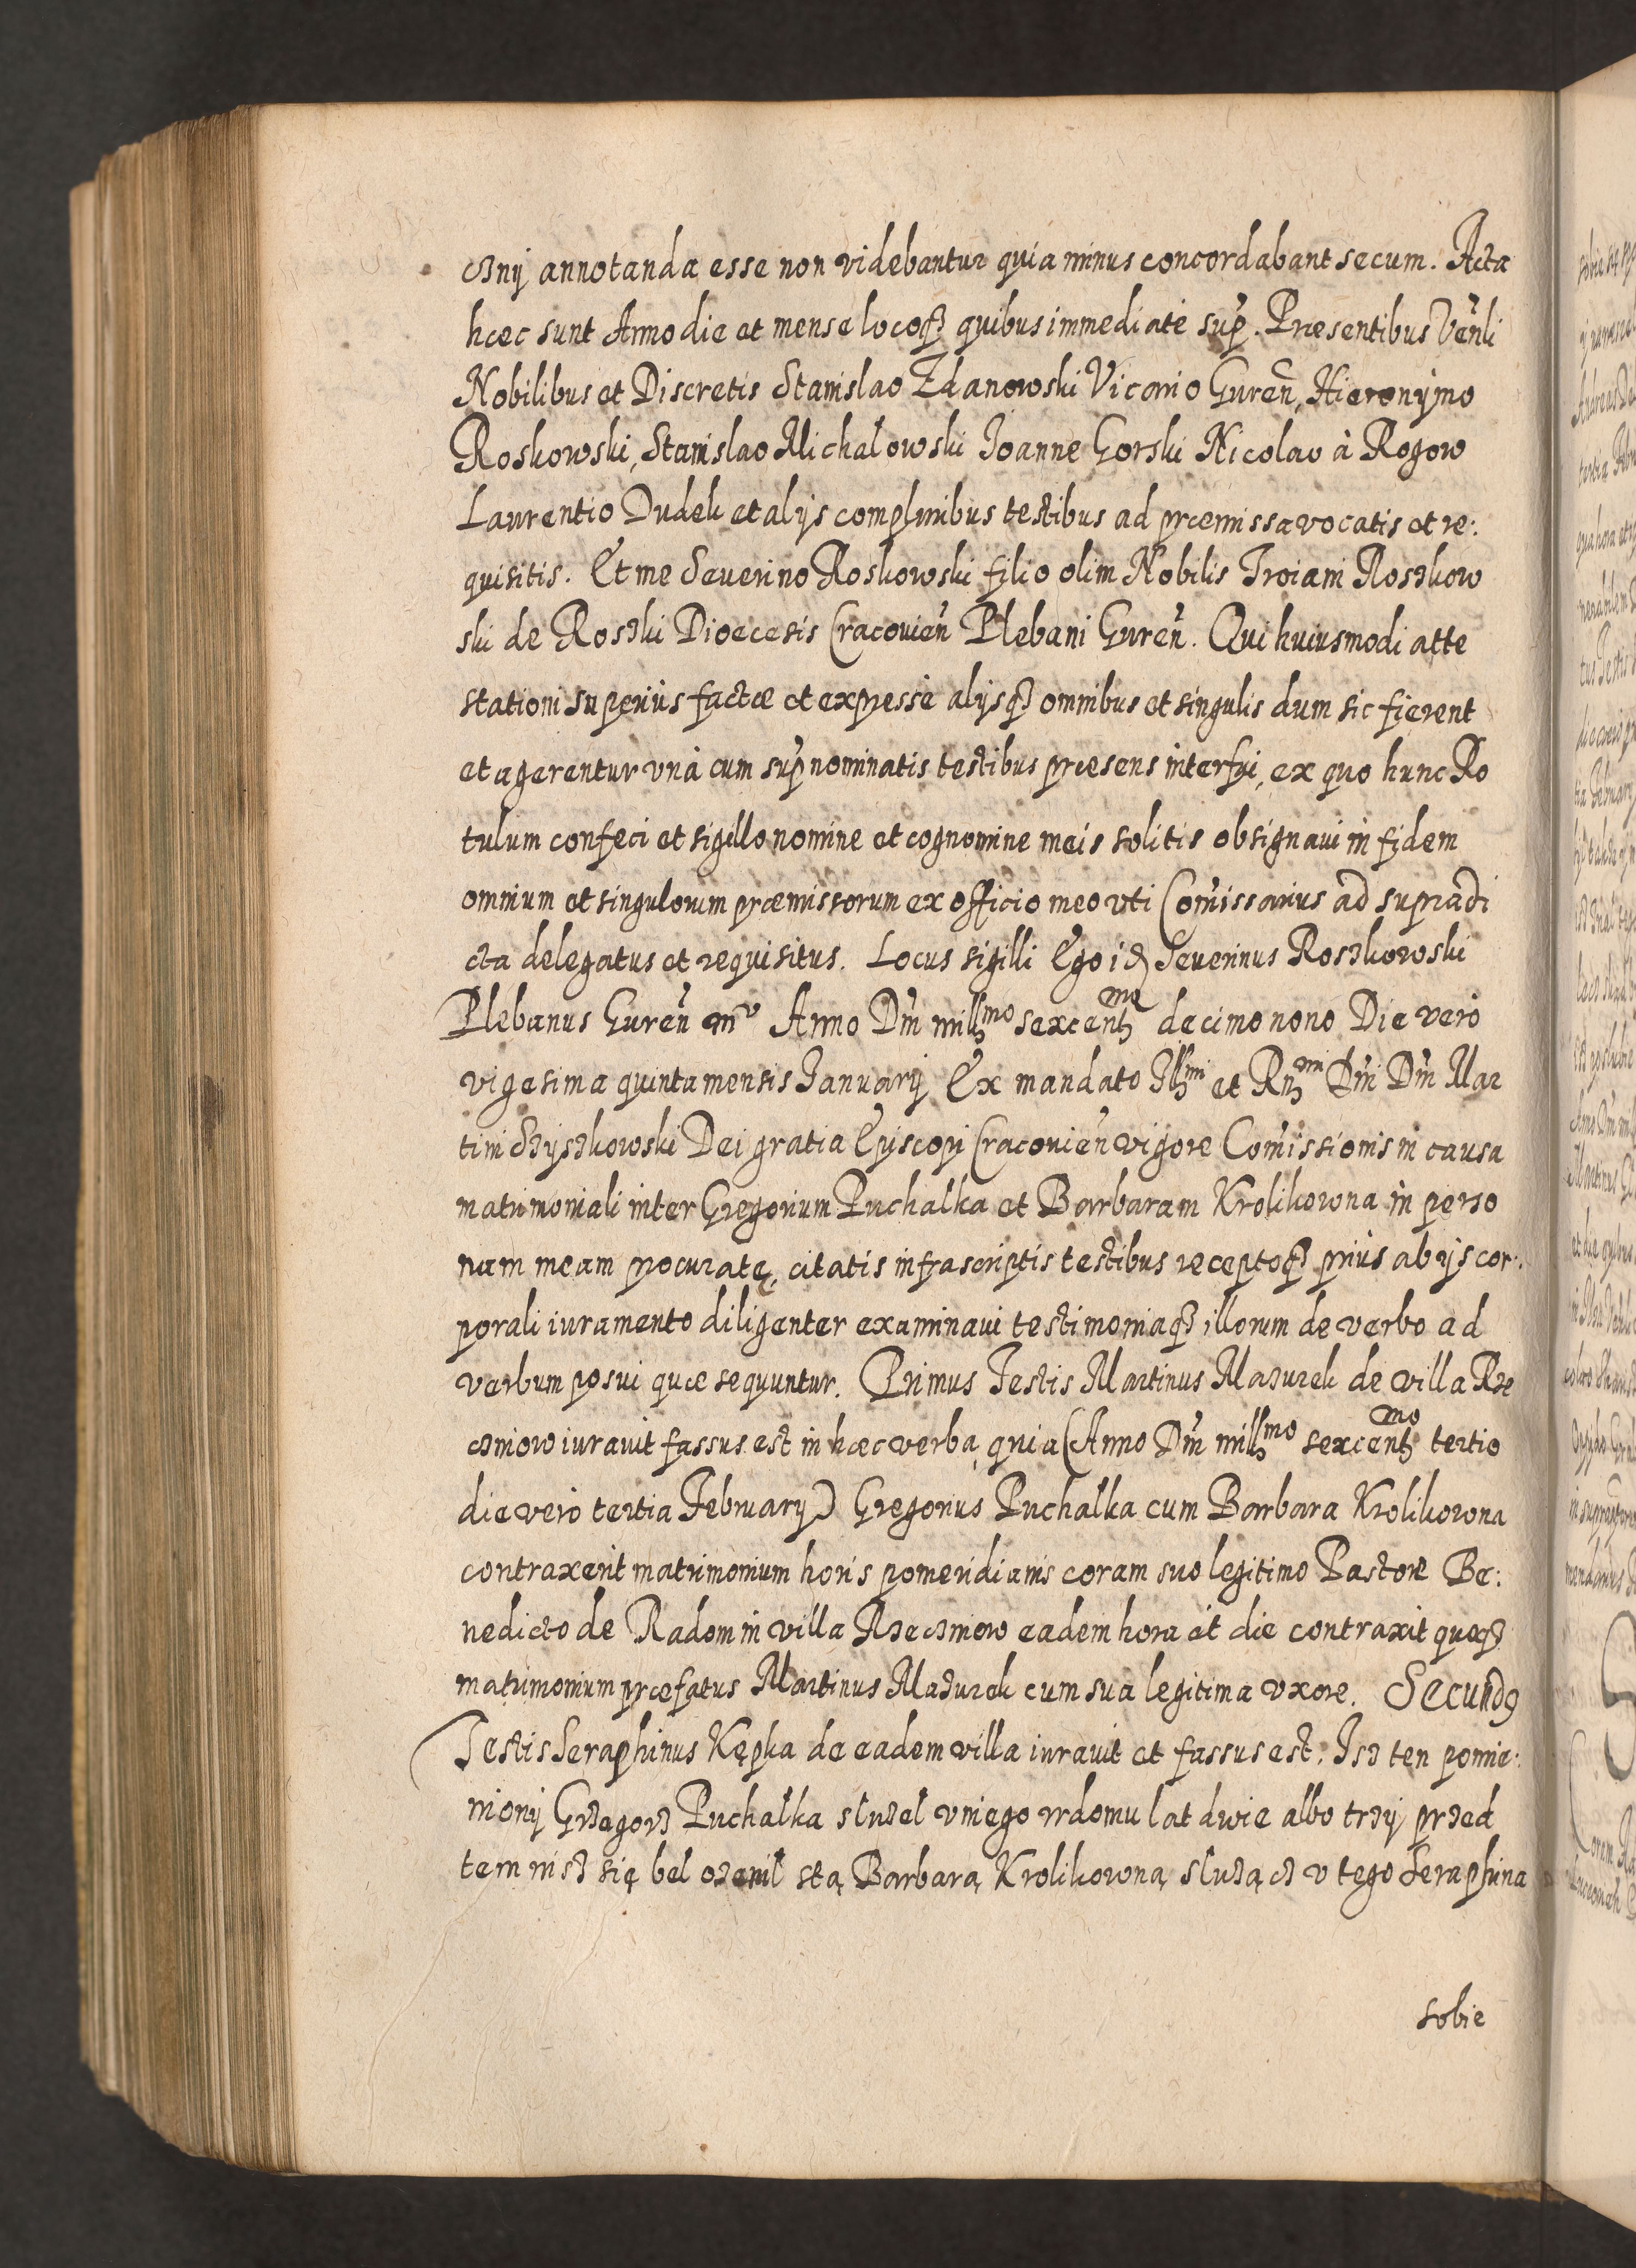 czny annotanda esse non videbantur quia minus concordabant secum. Acta
hæc sunt Anno die et mense locoq3 quibus immediatè sup. Præsentibus Venli
Nobilibus et Discretis Stanislao Zdanowski Vicario Guren, Hieronymo
Roskowski, Stanislao Michalowski Joanne Gorski Nicolao à Rogow
Laurentio Dudek et alijs compluribus testibus ad præmissa vocatis et re:
quisitis. Et me Seuerino Roskowski filio olim Nobilis Troiani Roszkow
ski de Roszki Dioecesis Cracouien Plebani Guren. Qui huiusmodi atte
stationi superius factæ et expressè alijsq3 omnibus et singulis dum sic fierent
et agerentur vnà cum supnominatis testibus præsens interfui, ex quo hunc Ro
tulum confeci et sigillo nomine et cognomine meis solitis obsignaui in fidem
omnium et singulorum præmissorum ex officio meo vti Comissarius ad supradi
cta delegatus et requisitus. Locus sigilli Ego id Seuerinus Roszkowski
Plebanus Guren mv Anno Dni millmo sexcentmo decimo nono Die verò
vigesima quinta mensis January Ex mandato Illmi et Rndmi Dni Dni Mar
tini Szyszkowski Dei gratia Episcopi Cracouien vigore Comissionis in causa
matrimoniali inter Gregorium Puchalka et Barbaram Krolikowna in perso
nam meam procuratę, citatis infrascriptis testibus receptoq3 priùs ab ijs cor:
porali iuramento diligenter examinaui testimoniaq3 illorum de verbo ad
verbum posui quæ sequuntur. Primus Testis Martinus Mazurek de villa Rze
czniow iurauit fassus est in hæc verba, quia (Anno Dni millmo sexcentmo tertio
die verò tertia February) Gregorius Puchałka cum Barbara Krolikowna
contraxerit matrimonium horis pomeridianis coram suo legitimo Pastore Be:
nedicto de Radom in villa Rzeczniow eadem hora et die contraxit quoq3
matrimonium præfatus Martinus Mazurek cum sua legitima vxore. Secundꝰ
Testis Seraphinus Kępka de eadem villa iurauit et fassus est. Isz ten pomie:
niony Grzegorz Puchałka służeł v niego w domu lat dwie albo trzy przed
tem nisz się beł ożenił stą Barbarą Krolikowną służącz v tego Seraphina
sobie